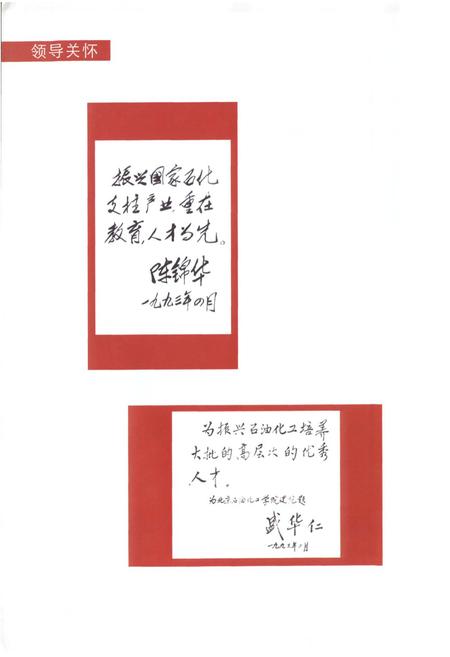 领导关怀
振兴国家石化
支柱产业，重在
教育，人才为先。
陈锦华
一九九三年四月
为振兴石油化工培养
大批的高层次的优秀
人才。
为北京石油化工学院建院题
盛华仁
一九九三年二月